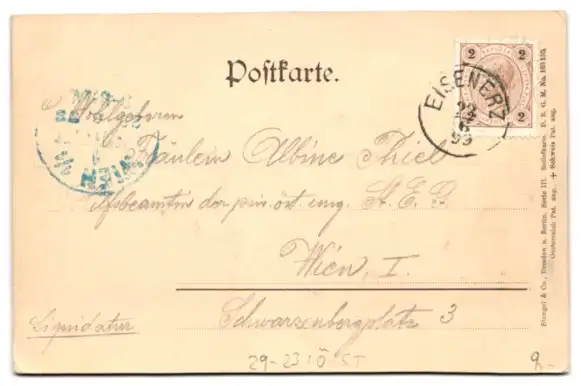 Postkarte.
2 2
2
EISENERZ
23
99
WIEN
Wohlgeboren
Fräulein Albine Thiel
der priv. öst. ung. St. E. G.
Wien, I.
Liquidatur
Schwarzenbergplatz 3
29-23 IÖ ST
Stengel & Co., Dresden u. Berlin. Serie III. Reliefkarte. D. R. G. M. No.
Oesterreich Pat. ang. + Schweiz Pat. ang.